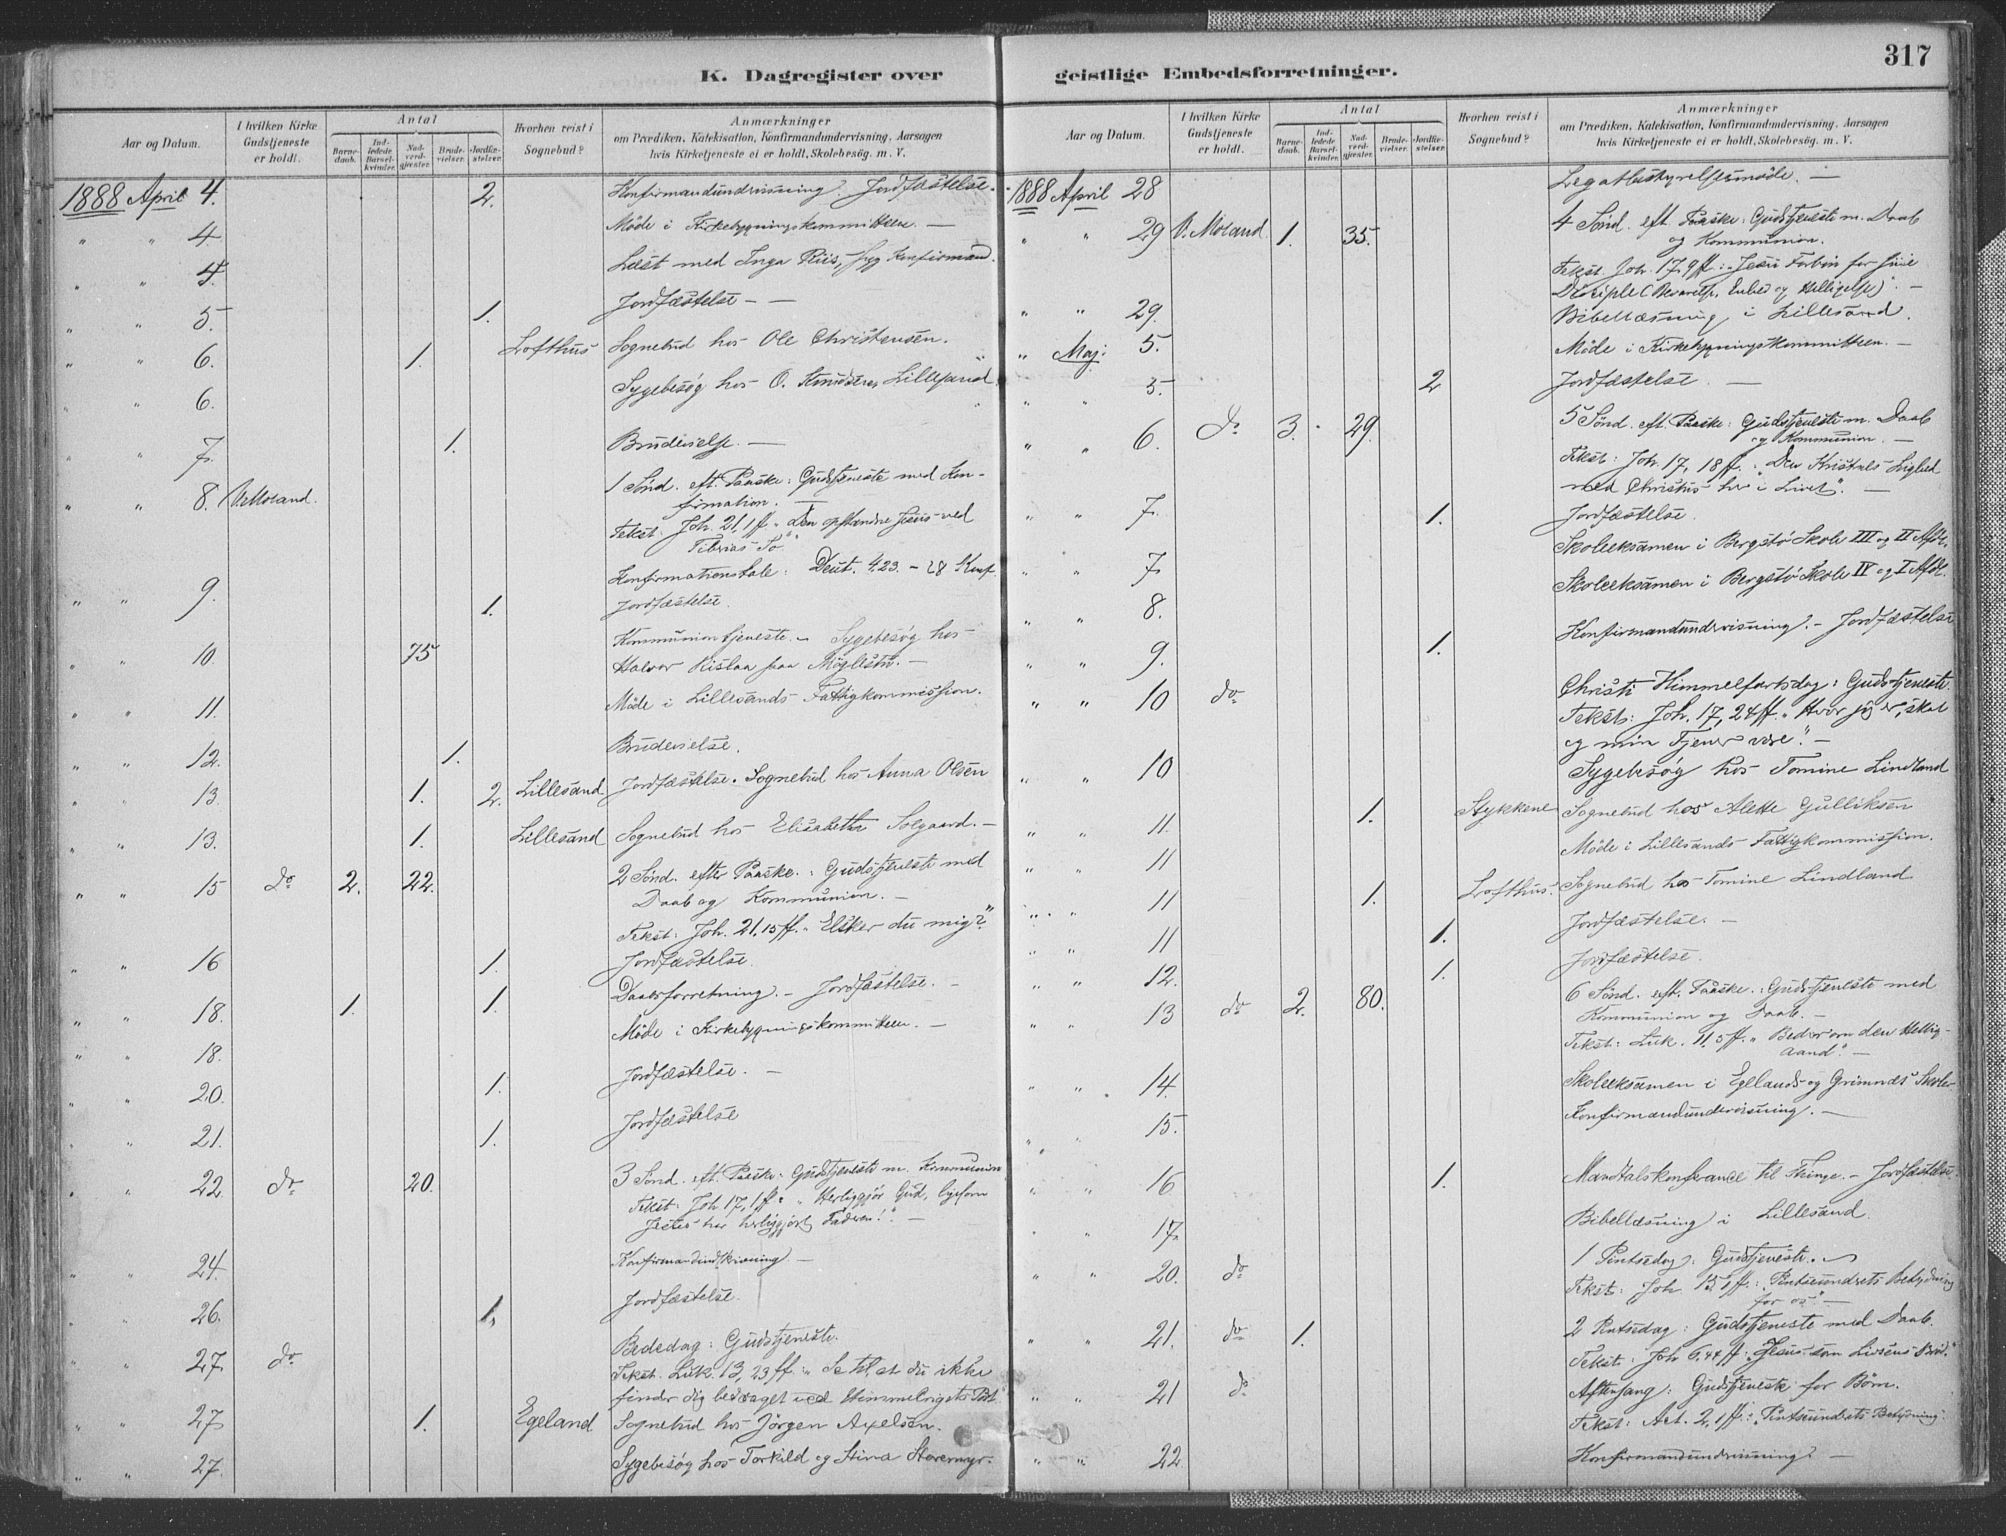 317
K. Dagregister over
Aar og Datum.
I hvilken Kirke Gudstjeneste er holdt.
Antal
Barne- daab.
Ind- ledede Barsel- kvinder.
Nad- verd- gjester.
Brude- vielser.
Jordfæ- stelser.
Hvorhen reist i Sognebud?
Anmærkninger
om Prædiken, Katekisation, Konfirmandundervisning, Aarsagen
hvis Kirketjeneste ei er holdt, Skolebesög. m. V.
1888 April 4. 2. Konfirmandundervisning. Jordfæstelse.
" " 4 Möde i Kirkebygningskommitteen. —
" " 4. Læst med Inga Riis, syg Konfirmand.
" " 5. 1. Jordfæstelse — —
" " 6. 1. Lofthus Sognebud hos Ole Christensen.
" " 6. Sygebesøg hos O. Lillesand.
" " 7. 1. Brudevielse. —
" " 8. V. Moland. 1 Sönd. eft. Paaske: Gudstjeneste med Kon-
firmation. —
Tekst: Joh. 21,1ff. "Den opstandne Jesus ved
Tiberias Sö"
Konfirmationstale: Deut. 4.23. – 28 Konf.
" " 9. 1. Jordfæstelse.
" " 10. 75 Kommuniontjeneste. – Sygebesög hos
Halvor paa Möglestu. —
" " 11. Möde i Lillesands Fattigkommission.
" " 12. 1. Brudevielse.
" " 13. 1. 2. Lillesand Jordfæstelse. Sognebud hos Anna Olsen
" " 13. 1. Lillesand Sognebud hos Elisabeth Solgaard. —
" " 15 do 2. 22. 2 Sönd. efter Paaske: Gudstjeneste med
Daab og Kommunion. —
Tekst: Joh. 21.15ff. "Elsker du mig?"
" " 16 1. Jordfæstelse.
" " 18. 1. 1. Daabsforretning. – Jordfæstelse. —
" " 18. Möde i Kirkebygningskommitteen. —
" " 20. 1. Jordfæstelse. —
" " 21. 1. Jordfæstelse
" " 22. do 20. 3 Sönd. eft. Paaske: Gudstjeneste m. Kommunion
Tekst: Joh 17,1ff: "Herliggjör Gud, ligesom
Jesus har herliggjort Faderen!" —
" " 24. Konfirmandindskrivning. —
" " 26. 1. Jordfæstelse.
" " 27. do Bededag: Gudstjeneste.
Tekst. Luk. 13, 23ff: "Se til, at du ikke
finder dig bedraget ved Himmelrigets Port
" " 27 1. Egeland Sognebud hos Jörgen Axelsen.
" " 27. Sygebesög hos Torkild og Stina
geistlige Embedsforretninger.
Aar og Datum.
I hvilken Kirke Gudstjeneste er holdt.
Antal
Barne- daab.
Ind- ledede Barsel- kvinder.
Nad- verd- gjester.
Brude- vielser.
Jordfæ- stelser.
Hvorhen reist i Sognebud?
Anmærkninger
om Prædiken, Katekisation, Konfirmandundervisning, Aarsagen
hvis Kirketjeneste ei er holdt, Skolebesög. m. V.
1888 April 28 Legatbestyrelsesmöde. —
" " 29 V. Moland. 1. 35. 4 Sönd. eft. Paaske: Gudstjeneste m. Daab
og Kommunion.
Tekst. Joh. 17,9ff: "Jesu Forbön for sine
Disciple (Bevarelse, Enhed og Helligelse)". —
" " 29. Bibellæsning i Lillesand.
" Maj: 5. Möde i Kirkebygningskommitteen. —
" " 5. 2 Jordfæstelse. —
" " 6. do 3. 29. 5 Sönd. eft. Paaske: Gudstjeneste m. Daab
og Kommunion. —
Tekst: Joh. 17, 18ff: "Den Kristnes Lighed
med Christus her i Livet". —
" " 7. 1. Jordfæstelse.
" " 7. Skoleeksamen i Bergstö Skole III og II Afdl.
" " 8. Skoleeksamen i Bergstö Skole IV og I Afdl.
" " 9. 1. Konfirmandundervisning. – Jordfæstelse
" " 10 do Christi Himmelfartsdag: Gudstjeneste.
Tekst: Joh. 17, 24ff. "Hvor jeg er, skal
og min Tjener være". —
" " 10 Sygebesög hos Tomine Lindland
" " 11. 1. Stykkene Sognebud hos Alette Gulliksen
" " 11 Möde i Lillesands Fattigkommission.
" " 11 1. Lofthus. Sognebud hos Tomine Lindland
" " 11 1. Jordfæstelse. —
" " 12. 1. Jordfæstelse.
" " 13 do 2. 80. 6 Sönd. eft. Paaske: Gudstjeneste med
Kommunion og Daab. —
Tekst: Luk. 11.5ff. "Beder om den Hellig-
aand". —
" " 14. Skoleeksamen i Egelands og Grimnæs Skoler
" " 15. Konfirmandundervisning. —
" " 16 1. Mandtalskonferance til Thinge. – Jordfæstelse.
" " 17. Bibellæsning i Lillesand.
" " 20. do 1 Pintsedag: Gudstjeneste. —
Tekst: Joh 15,1ff: "Pintseundrets Betydning
for os". —
" " 21. do 1. 2 Pintsedag: Gudstjeneste med Daab.
Tekst: Joh 6,44ff: "Jesus som Livsens Bröd".
" " 21 do Aftensang: Gudstjeneste for Börn.
Tekst: Act. 2,1ff: "Pintseundrets Betydning".
" " 22 Konfirmandundervisning. —